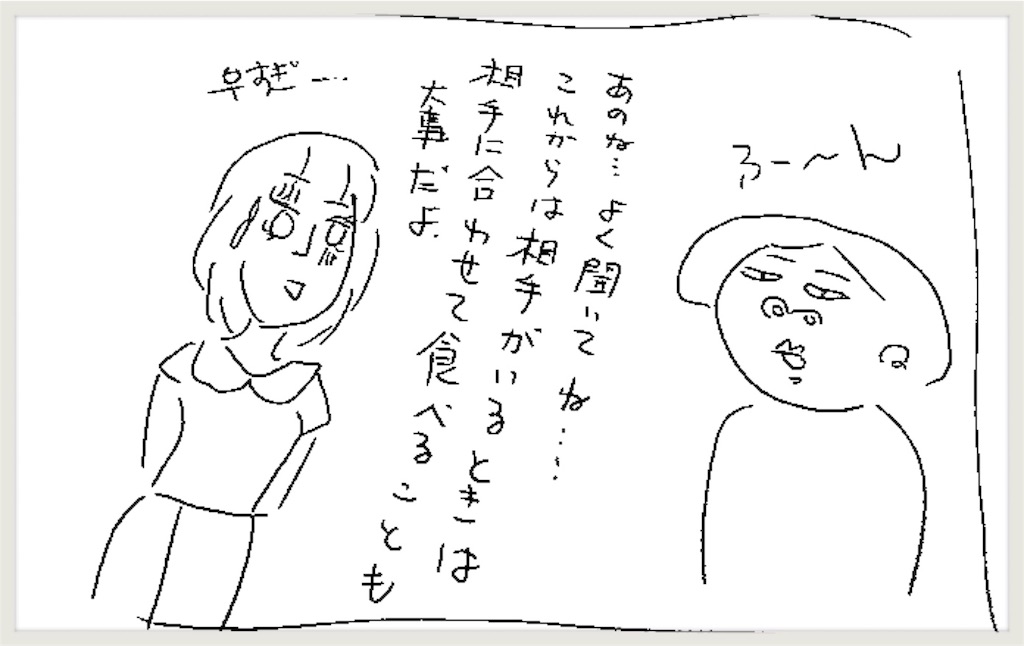 ふーーん
あのね…よく聞いてね……
これからは相手がいるときは
相手に合わせて食べることも
大事だよ
早すぎー…